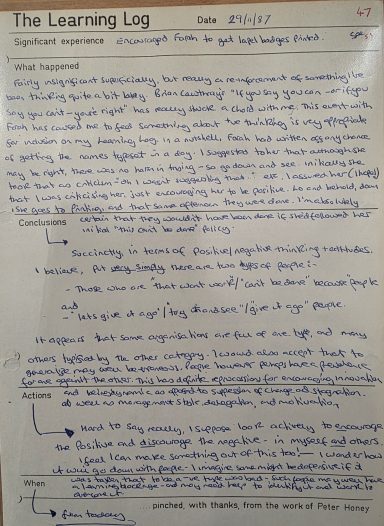 The Learning Log
Date 29/11/87
47
Significant experience Encouraged Farah to get lapel badges printed.
What happened
Fairly insignificant superficially, but really a reinforcement of something I've
been thinking quite a bit lately. Brian Cawthray's "If you say you can - or if you
say you can't - you're right" has really struck a chord with me. This event with
Farah has caused me to feel something about +ve thinking is very appropriate
for inclusion on my learning log in a nutshell, Farah had written off any chance
of getting the names typeset in a day. I suggested to her that although she
may be right, there was no harm in trying - so go down and see. Initially she
took that as criticism - oh I wasn't suggesting that " etc. I assured her (I hope)
that I wasn't criticising her, just encouraging her to be positive. Lo and behold, down
she goes to Printing, and that same afternoon they were done. I'm absolutely
Conclusions certain that they wouldn't have been done if she'd followed her
initial "this can't be done" policy.
Succinctly, in terms of positive/negative thinking + attitudes.
I believe, put very simply there are two types of people:-
- Those who are "that won't work"/"can't be done" because "people
and
- "lets give it a go"/"try it and see"/"give it a go" people.
It appears that some organisations are full of one type, and many
others typified by the other category. I would also accept that to
generalise may well be erroneous. People however perhaps have a preference
for one against the other. This has definite repercussions for encouraging innovation
and being dynamic as opposed to suppression of change and stagnation.
Actions as well as management style, delegation, and motivation.
Hard to say really, I suppose look actively to encourage
the positive and discourage the negative - in myself and others.
I feel I can make something out of this too! - I wonder how
it will go down with people - I imagine some might be defensive if it
was taken that to be a -ve type was bad - such people may well have
When a learning blockage - and may need help to identify it and work to
overcome it.
from today
....pinched, with thanks, from the work of Peter Honey